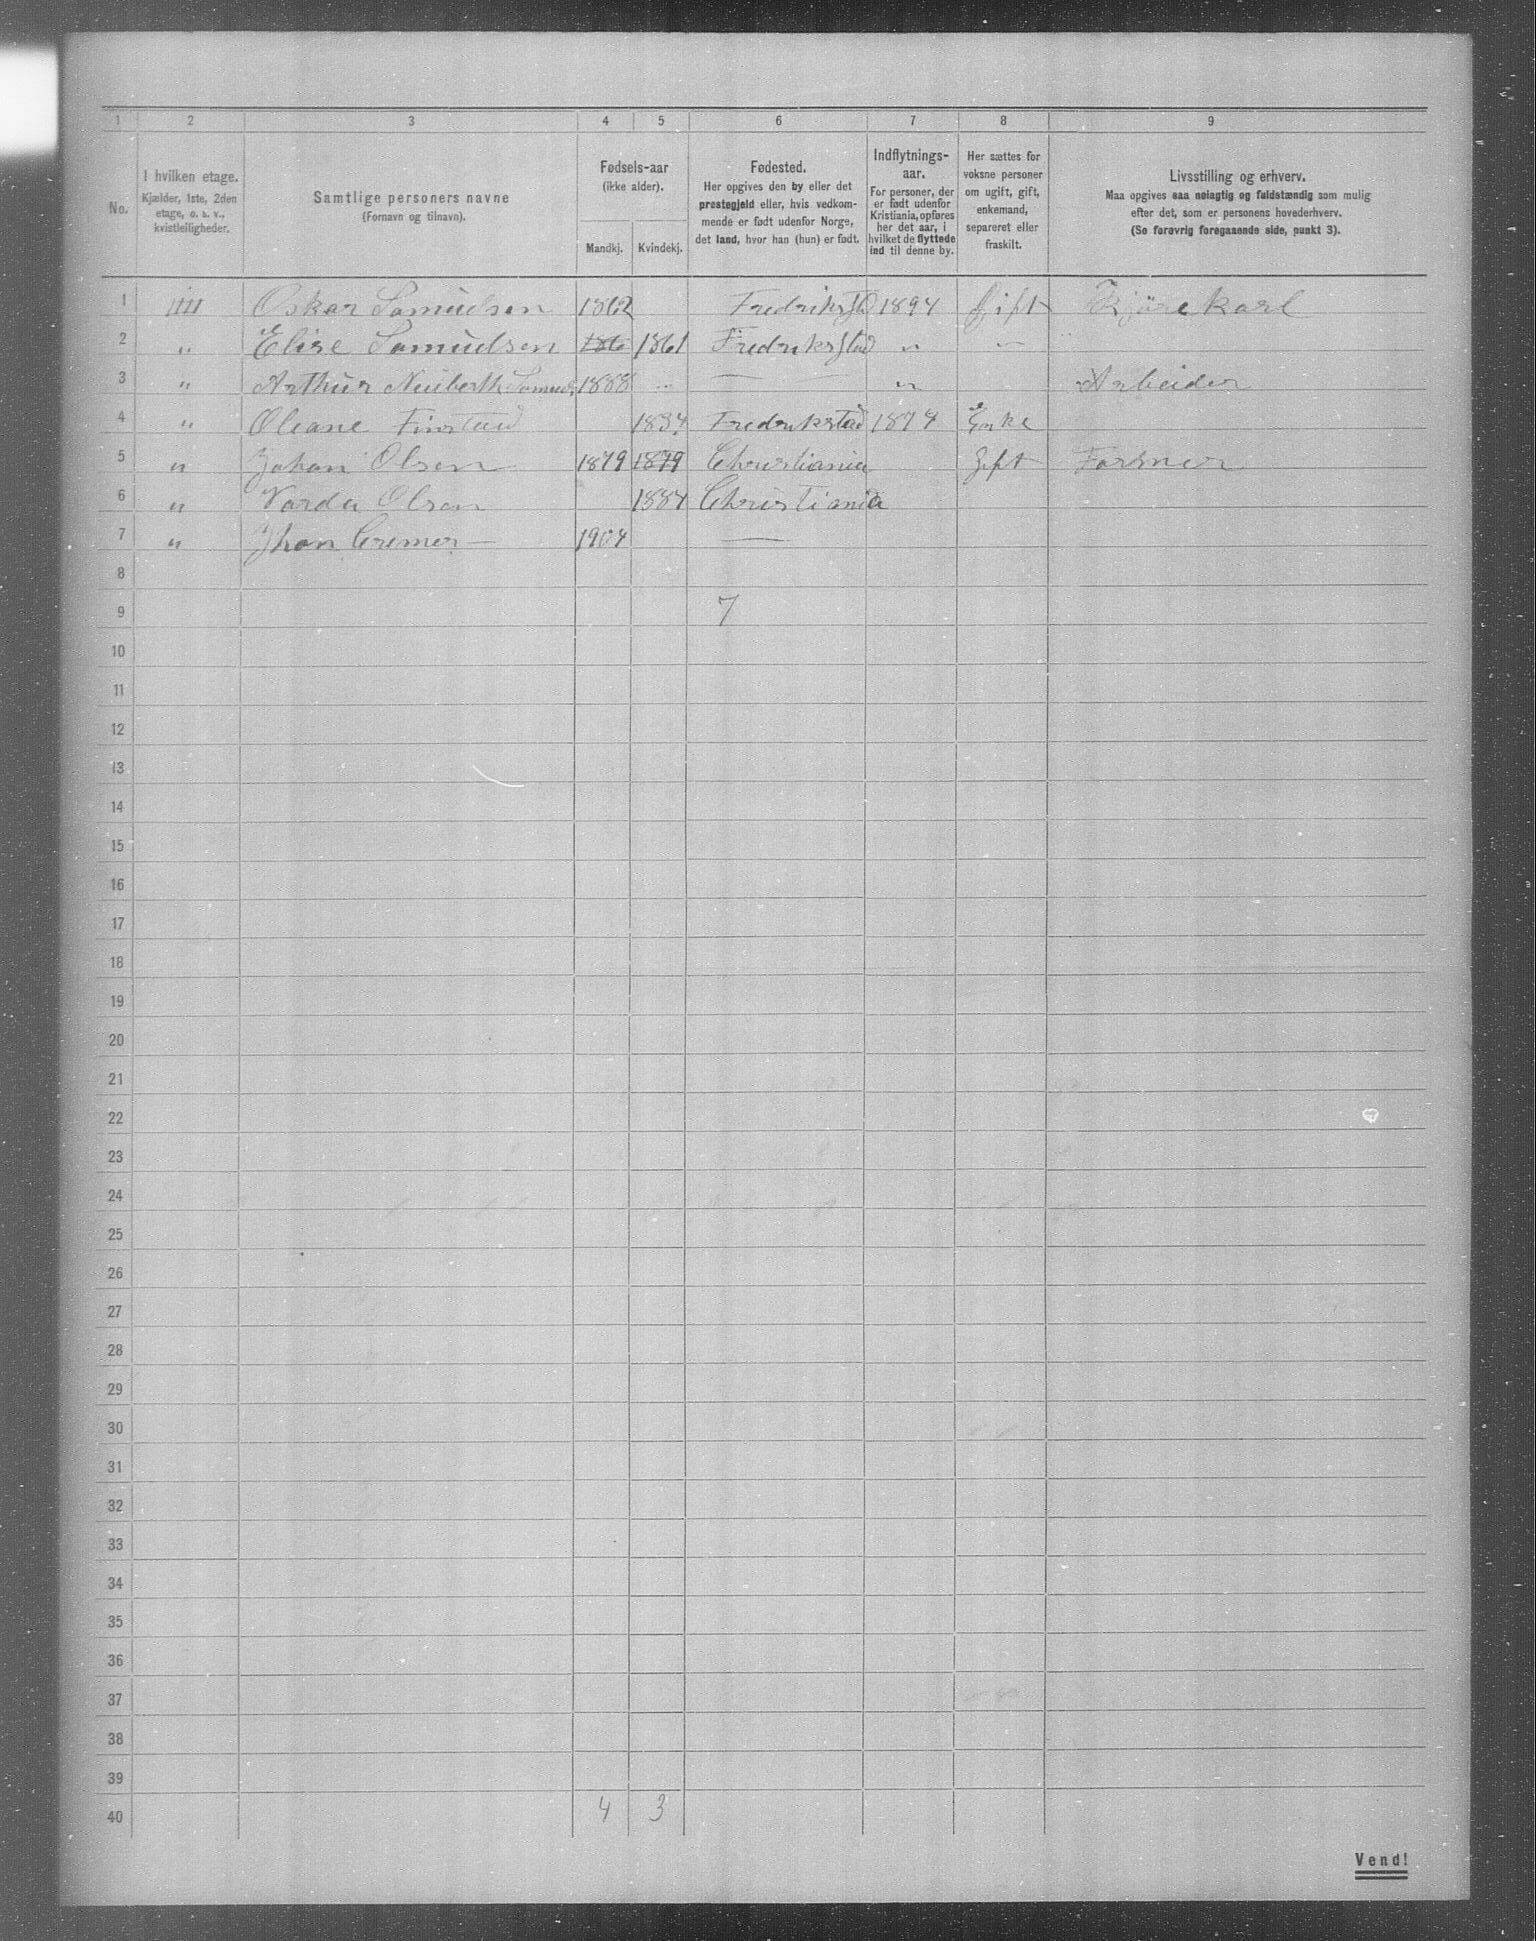 1 2 3 4 5 6 7 8 9
No.
I hvilken etage.
Kjælder, 1ste, 2den
etage, o. s. v.,
kvistleiligheder.
Samtlige personers navne
(Fornavn og tilnavn).
Fødsels-aar
(ikke alder).
Mandkj. Kvindekj.
Fødested.
Her opgives den by eller det
prestegjeld eller, hvis vedkom-
mende er født udenfor Norge,
det land, hvor han (hun) er født.
Indflytnings-
aar.
For personer, der
er født udenfor
Kristiania, opføres
her det aar, i
hvilket de flyttede
ind til denne by.
Her sættes for
voksne personer
om ugift, gift,
enkemand,
separeret eller
fraskilt.
Livsstilling og erhverv.
Maa opgives saa nøiagtig og fuldstændig som mulig
efter det, som er personens hovederhverv.
(Se forøvrig foregaaende side, punkt 3).
1 IIII Oskar Samuelsen 1862 Fredrikstad 1894 Gift Kjørekarl
2 " Elise Samuelsen 186 1861 Fredrikstad " "
3 " Arthur Neuberth Samuels 1888 " — " Arbeider
4 " Oleane Finstad 1834 Fredrikstad 1874 Enke
5 " Johan Olsen 1879 1879 Christiania Gift Formner
6 " Olsen 1884 Christiania
7 " Jhon Cremer — 1904 —
8
9 7
10
11
12
13
14
15
16
17
18
19
20
21
22
23
24
25
26
27
28
29
30
31
32
33
34
35
36
37
38
39
40 4 3
Vend!